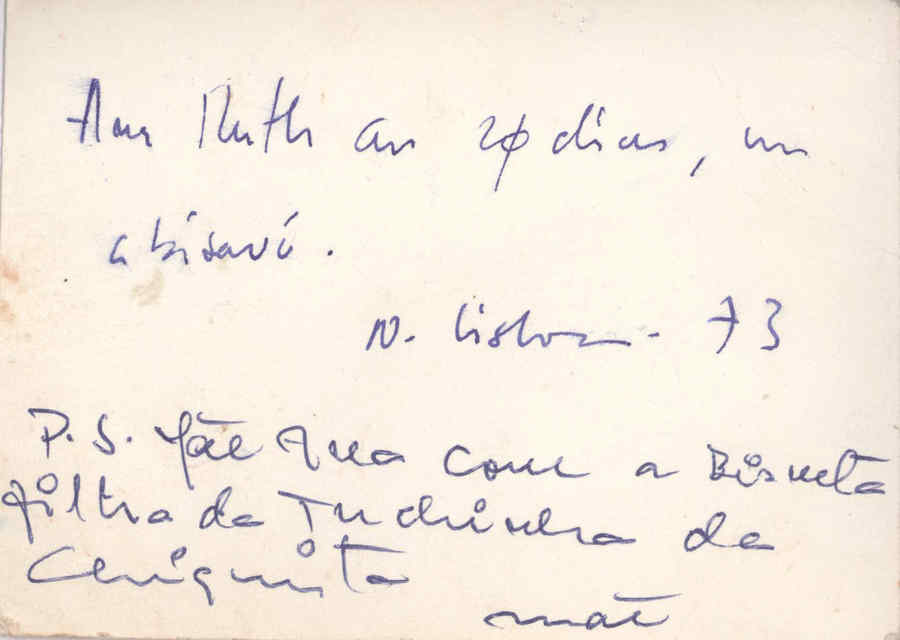 Ana Ruth aos 20 dias, com
a bisavó.
N. Lisboa - 73
P.S. Mãe Ana com a Bisneta
filha da Tuchinha da
Chiquita
mãe